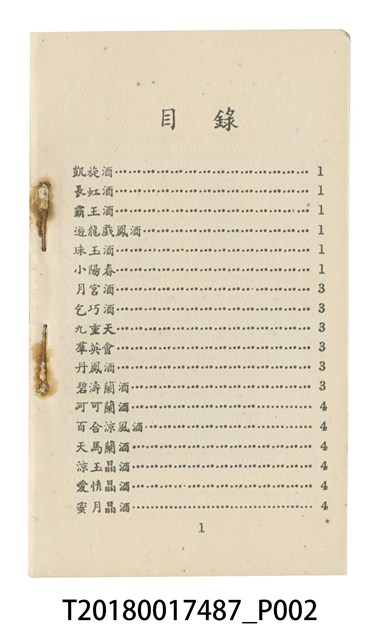 目錄
凱旋酒……………………………1
長虹酒……………………………1
霸王酒……………………………1
遊龍戲鳳酒………………………1
珠玉酒……………………………1
小陽春……………………………1
月宮酒……………………………3
乞巧酒……………………………3
九重天……………………………3
羣英會……………………………3
丹鳳酒……………………………3
碧濤蘭酒…………………………3
可可蘭酒…………………………4
百合涼風酒………………………4
天馬蘭酒…………………………4
涼玉晶酒…………………………4
愛情晶酒…………………………4
蜜月晶酒…………………………4
1
T20180017487_P002